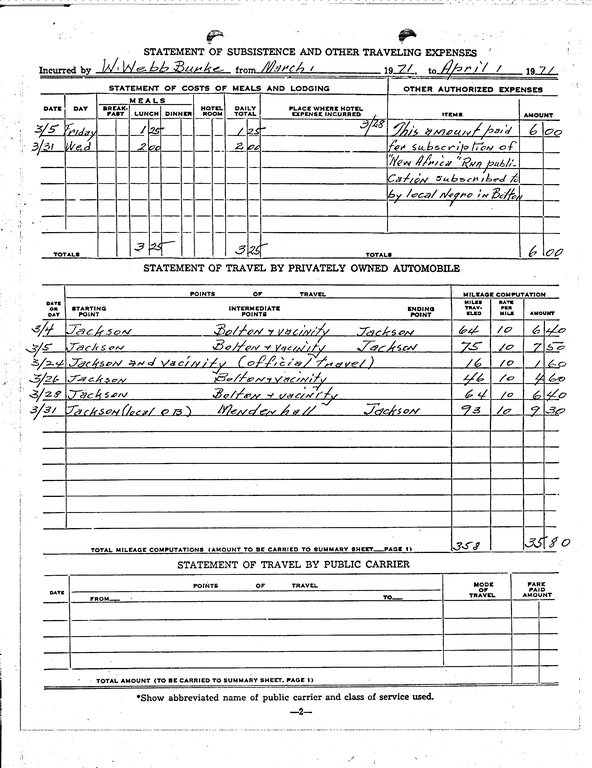 STATEMENT OF SUBSISTENCE AND OTHER TRAVELING EXPENSES
Incurred by W. Webb Burke from March 1 1971, to April 1 1971
STATEMENT OF COSTS OF MEALS AND LODGING OTHER AUTHORIZED EXPENSES
DATE DAY MEALS BREAK-FAST LUNCH DINNER HOTEL ROOM DAILY TOTAL PLACE WHERE HOTEL EXPENSE INCURRED ITEMS AMOUNT
3/5 Friday 1 25 1 25 3/28 This amount paid 6 00
3/31 Wed 2 00 2 00 for subscription of
"New Africa" RNA publi-
cation subscribed to
by local Negro in Bolton
TOTALS 3 25 3 25 TOTALS 6 00
STATEMENT OF TRAVEL BY PRIVATELY OWNED AUTOMOBILE
POINTS OF TRAVEL MILEAGE COMPUTATION
DATE OR DAY STARTING POINT INTERMEDIATE POINTS ENDING POINT MILES TRAV-ELED RATE PER MILE AMOUNT
3/4 Jackson Bolton + vacinity Jackson 64 10 6 40
3/5 Jackson Bolton + vacinity Jackson 75 10 7 50
3/24 Jackson and vacinity (official travel) 16 10 1 60
3/26 Jackson Bolton + vacinity 46 10 4 60
3/28 Jackson Bolton + vacinity 64 10 6 40
3/31 Jackson (local OB) Mendenhall Jackson 93 10 9 30
TOTAL MILEAGE COMPUTATIONS (AMOUNT TO BE CARRIED TO SUMMARY SHEET—PAGE 1) 358 35 80
STATEMENT OF TRAVEL BY PUBLIC CARRIER
DATE POINTS OF TRAVEL MODE OF TRAVEL FARE PAID AMOUNT
FROM— TO—
TOTAL AMOUNT (TO BE CARRIED TO SUMMARY SHEET, PAGE 1)
*Show abbreviated name of public carrier and class of service used.
—2—